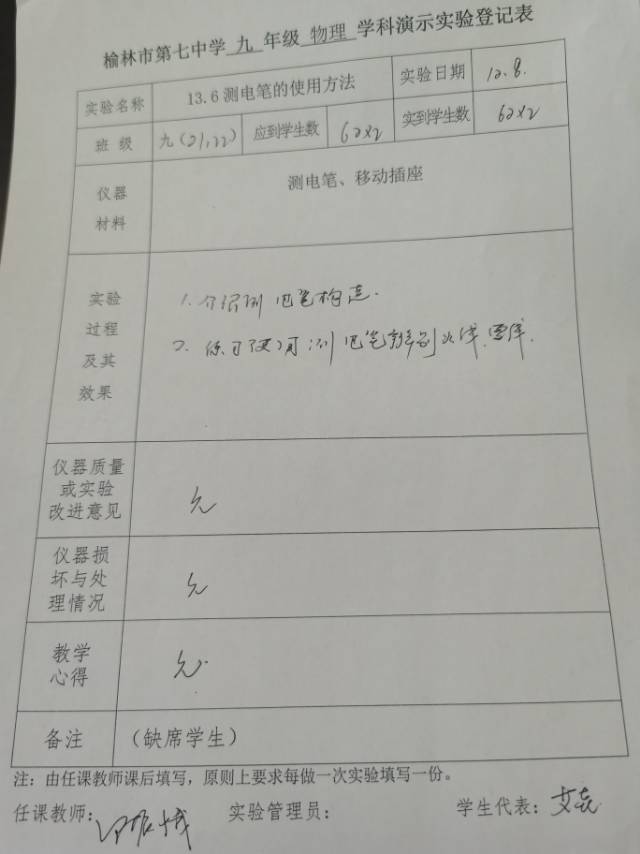 榆林市第七中学 九 年级 物理 学科演示实验登记表
实验名称 13.6测电笔的使用方法 实验日期 12.8.
班 级 九(21,22) 应到学生数 62×2 实到学生数 62×2
仪器
材料
测电笔、移动插座
实验
过程
及其
效果
1.介绍测电笔构造.
2.练习使用测电笔辨别火线.零线.
仪器质量
或实验
改进意见
无
仪器损
坏与处
理情况
无
教学
心得
无.
备注 (缺席学生)
注:由任课教师课后填写,原则上要求每做一次实验填写一份。
任课教师: 实验管理员: 学生代表: